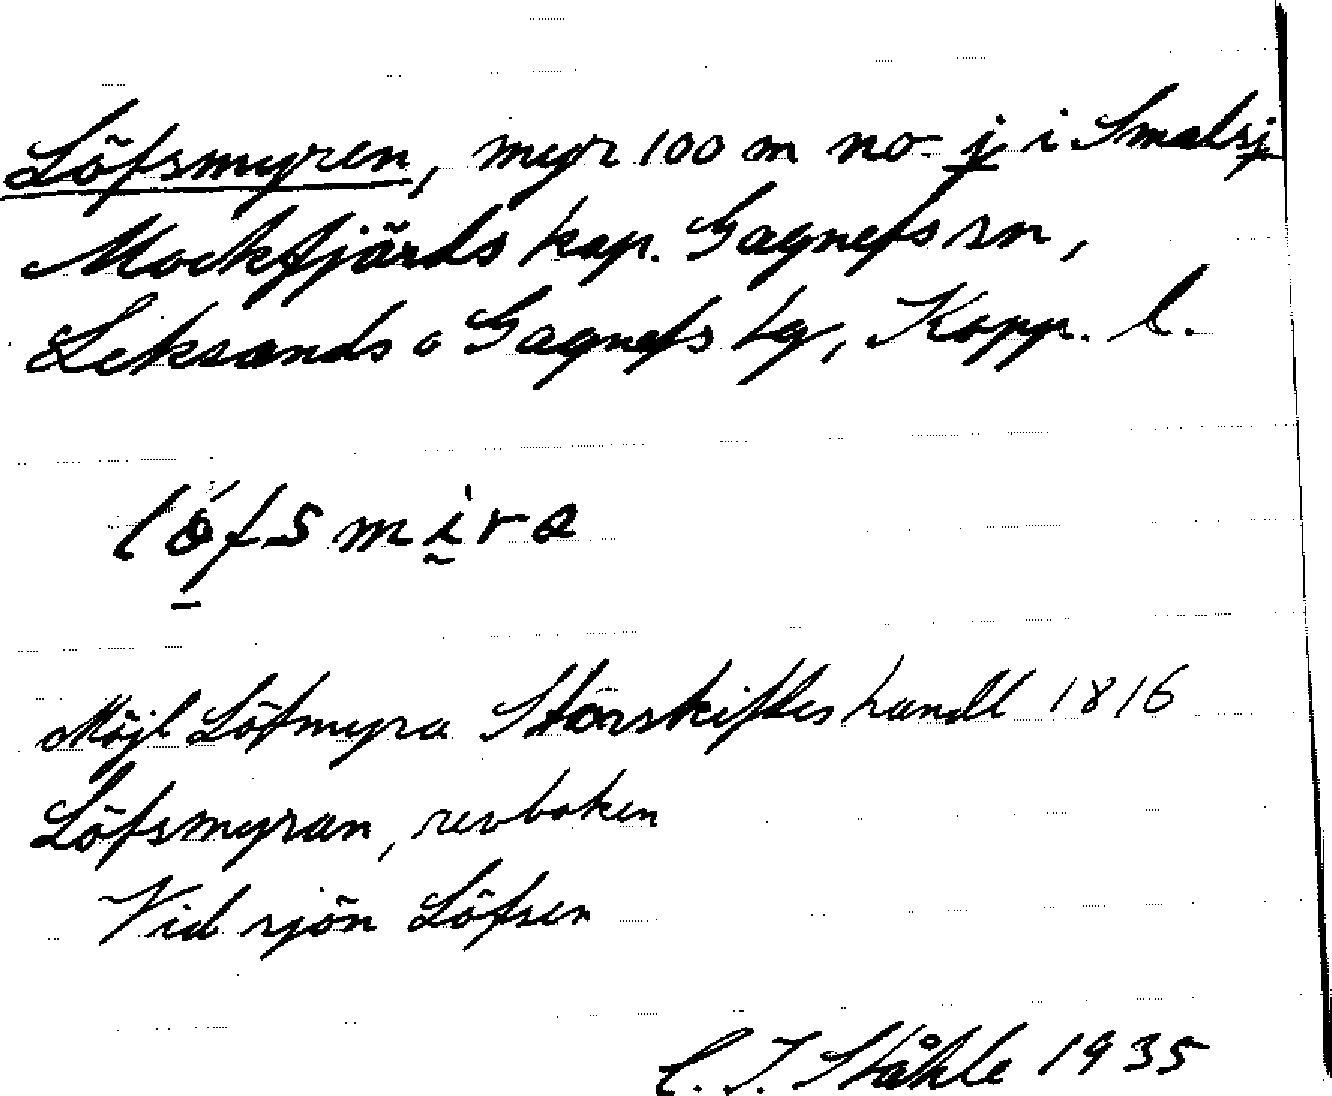 Löfsmyren, myr 100 m no j i Smalsj
Mockfjärds kap. Gagnefs sn,
Leksands o Gagnefs tg, Kopp. l.
löfsmira
Möjl Löfmyra Storskifteshandl 1816
Löfsmyran, revboken
Vid sjön Löfsen
C. I. Ståhle 1935